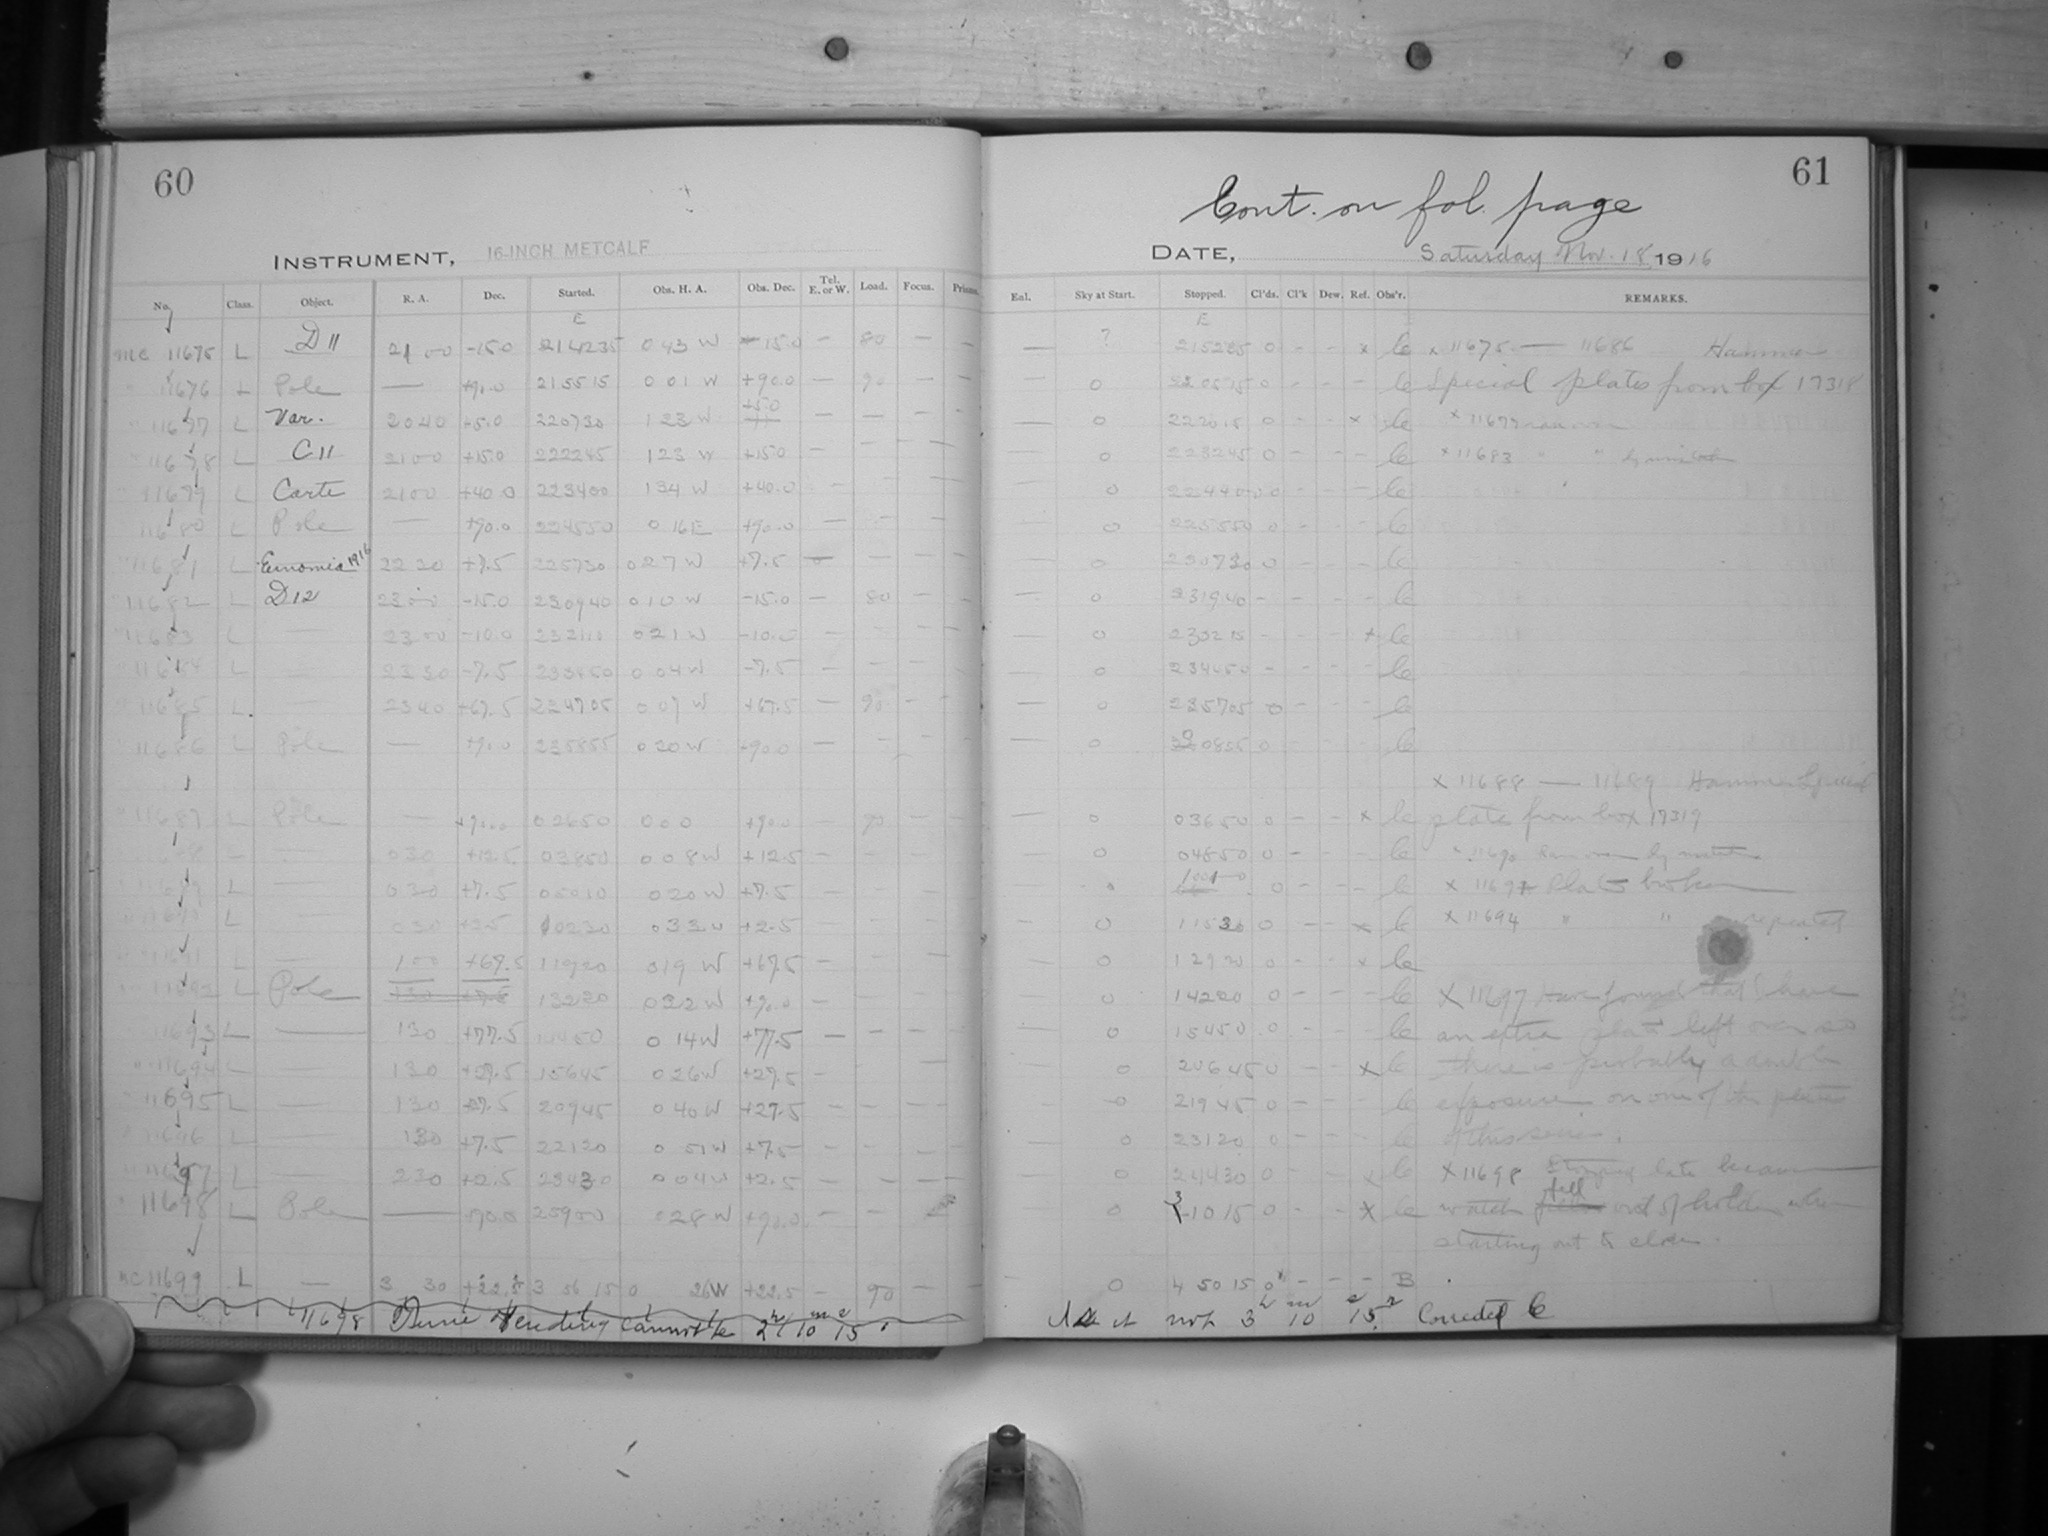 60
INSTRUMENT, 16-INCH METCALF
No. Class. Object. R. A. Dec. Started. Obs. H. A. Obs. Dec. Tel. E. or W. Load. Focus. Prisms.
E
MC 11675 L D 11 21 00 -15.0 214235 0 43 W -15.0 — 80 — —
" 11676 L Pole — +90.0 215515 0 01 W +90.0 — 90 — —
" 11677 L Var. 20 40 +5.0 220730 1 23 W +5.0 — — — —
" 11678 L C 11 21 00 +15.0 222245 1 23 W +15.0 — — — —
" 11679 L Carte 21 00 +40.0 223400 1 34 W +40.0 — — — —
11680 L Pole — +90.0 224550 0 16 E +90.0 — — — —
" 11681 L Eunomia 1916 22 20 +7.5 225730 0 27 W +7.5 — — — —
" 11682 L D 12 23 00 -15.0 230940 0 10 W -15.0 — 80 — —
" 11683 L — 23 00 -10.0 232110 0 21 W -10.0 — — — —
" 11684 L — 23 30 -7.5 233450 0 04 W -7.5 — — — —
" 11685 L — 23 40 +67.5 224705 0 07 W +67.5 — 90 — —
" 11686 L Pole — +90.0 235855 0 20 W +90.0 — — — —
" 11687 L Pole — +90.0 02650 0 0 0 +90.0 — 90 — —
L — 0 30 +12.5 03850 0 08 W +12.5 — — — —
" 11689 L — 0 30 +7.5 05010 0 20 W +7.5 — — — —
L 0 30 +2.5 10230 0 33 W +2.5 — — — —
" 11691 L — 1 00 +67.5 11920 0 19 W +67.5 — — — —
" 11692 L Pole 13220 0 32 W +90.0 — — — —
11693 L — 1 30 +77.5 0 14 W +77.5 — — — —
" 11694 L — 1 30 +27.5 15645 0 26 W +27.5 — —
11695 L — 1 30 +27.5 20945 0 40 W +27.5 — — — —
11696 L — 1 30 +7.5 22120 0 51 W +7.5 — — — —
11697 L — 2 30 +2.5 23430 0 04 W +2.5 — — — —
" 11698 L Pole — +90.0 25900 0 28 W +90.0 — —
MC 11699 L — 3 30 +22.5 3 56 15 0 26 W +22.5 — 90 — —
11698 cannot be 2h 10m 15s
61
Cont. on fol. page
DATE, Saturday Nov. 18, 1916
Enl. Sky at Start. Stopped. Cl'ds. Cl'k Dew. Ref. Obs'r. REMARKS.
E
— ? 215235 0 — — x C x 11675 — 11686 Hammer
— 0 220515 0 — — — C Special plates from box 17318
— 0 222015 0 — — x C x 11677
0 223245 0 — — — C x 11683 " "
0 224400 0 — — — C
0 225550 0 — — — C
0 230730 0 — — — C
— 0 231940 — — — — C
— 0 230215 — — — x C
0 234450 — — — — C
— 0 235705 0 — — — C
— 0 00855 0 C
x 11688 — 11689 Hammer Special
— 0 03650 0 — — x C plate from box 17319
— 0 04850 0 — — C x 11690
0 10010 0 — — C x 11691 Plate broken
— 0 11530 0 — — x C x 11694 " " repeated
— 0 12920 0 — — x C
0 14220 0 — — — C X 11697 Have found that I have
0 15450 0 — — — C an extra plate left over so
0 20645 0 — — x C there is probably a double
0 21945 0 — — — C exposure on one of the plates
— 0 23120 0 — — — C of this series.
— 0 24430 0 — — x C X 11698 Stopped late because
— 0 31015 0 — — X C watch fell out of holder when
starting out to close.
0 4 50 15 0 — — — B
not 3h 10m 15s Corrected C